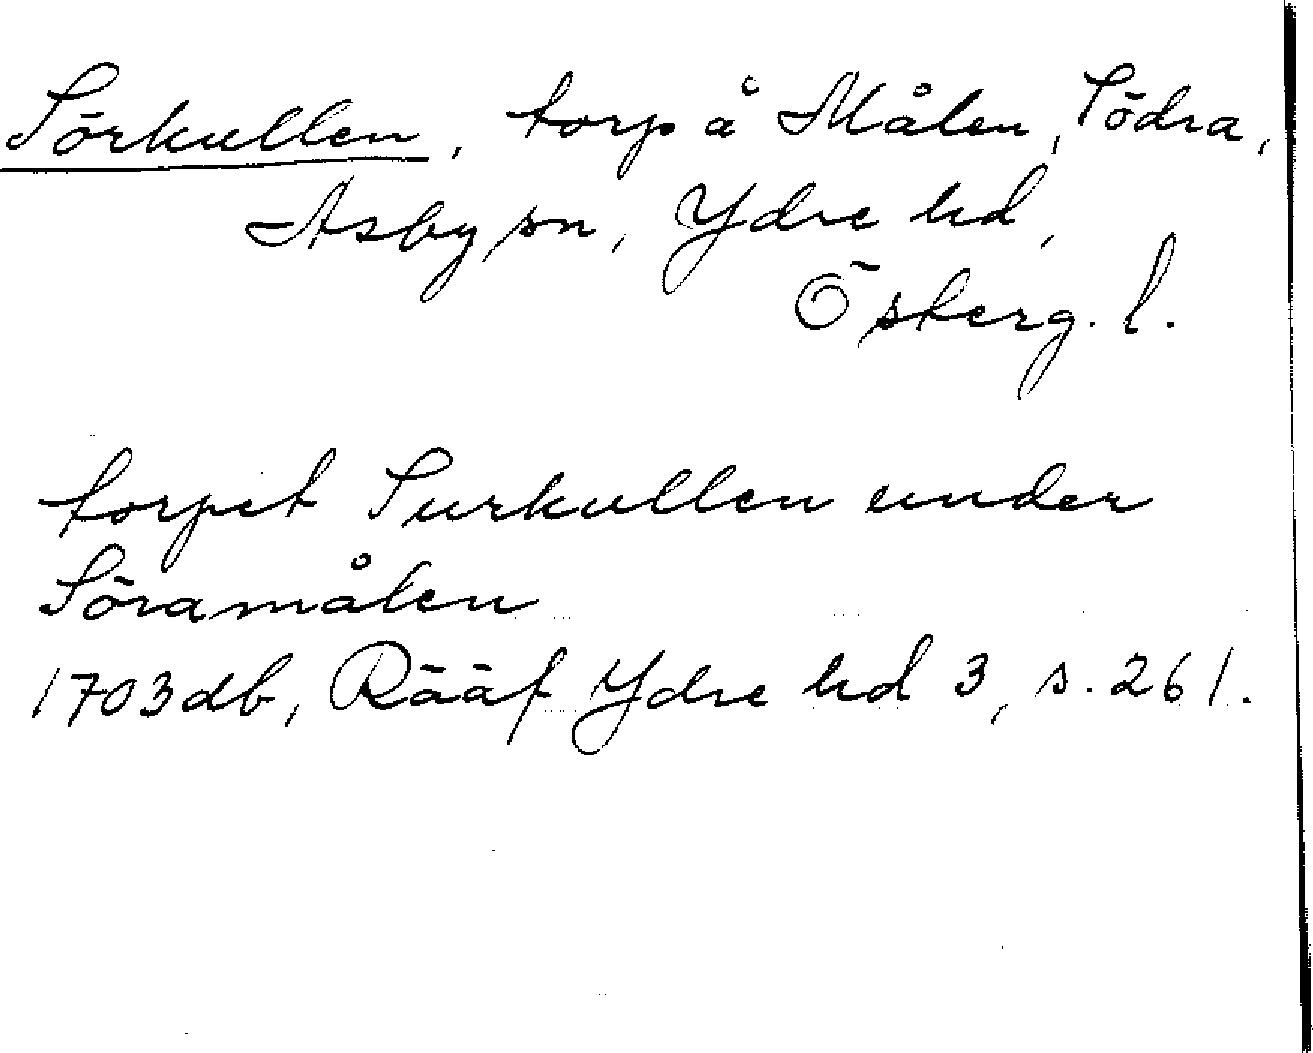 Sörkullen, torp å Målen, Södra,
Asby sn, Ydre hd,
Österg. l.
torpet Surkullen under
Söramålen
1703 db, Rääf Ydre hd 3, s. 261.